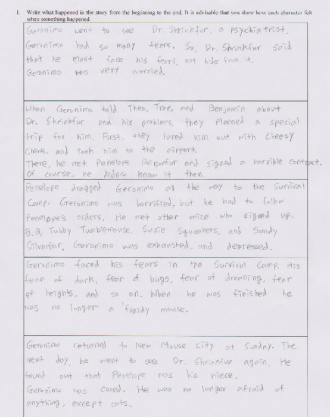 1. Write what happened in the story from the beginning to the end. It is advisable that you show how each character felt
when something happened.
Geronimo went to see Dr. Shrinkfur, a psychiatrist.
Geronimo had so many fears. So, Dr. Shrinkfur said
that he must face his fears, not hide from it.
Geronimo was very worried.
When Geronimo told Thea, Trap, and Benjamin about
Dr. Shrinkfur and his problems, they planned a special
trip for him. First, they lured him out with cheesy
and took him to the airport.
There, he met Penelope and signed a horrible contract.
Of course, he didn't know it then.
Penelope dragged Geronimo all the way to the Survival
Camp. Geronimo was horrified, but he had to follow
Penelope's orders. He met other mice who signed up.
Tubby Tumblemouse, Suzie Squeakers, and Sandy
Silverfur. Geronimo was exhausted, and depressed.
Geronimo faced his fears in the Survival Camp. His
fear of dark, fear of bugs, fear of drowning, fear
of heights, and so on. When he was finished he
was no longer a 'fraidy mouse.
Geronimo returned to New Mouse City at Sunday. The
next day he went to see Dr. Shrinkfur again. He
found out that Penelope was his niece.
Geronimo was cured. He was no longer afraid of
anything, except cats.